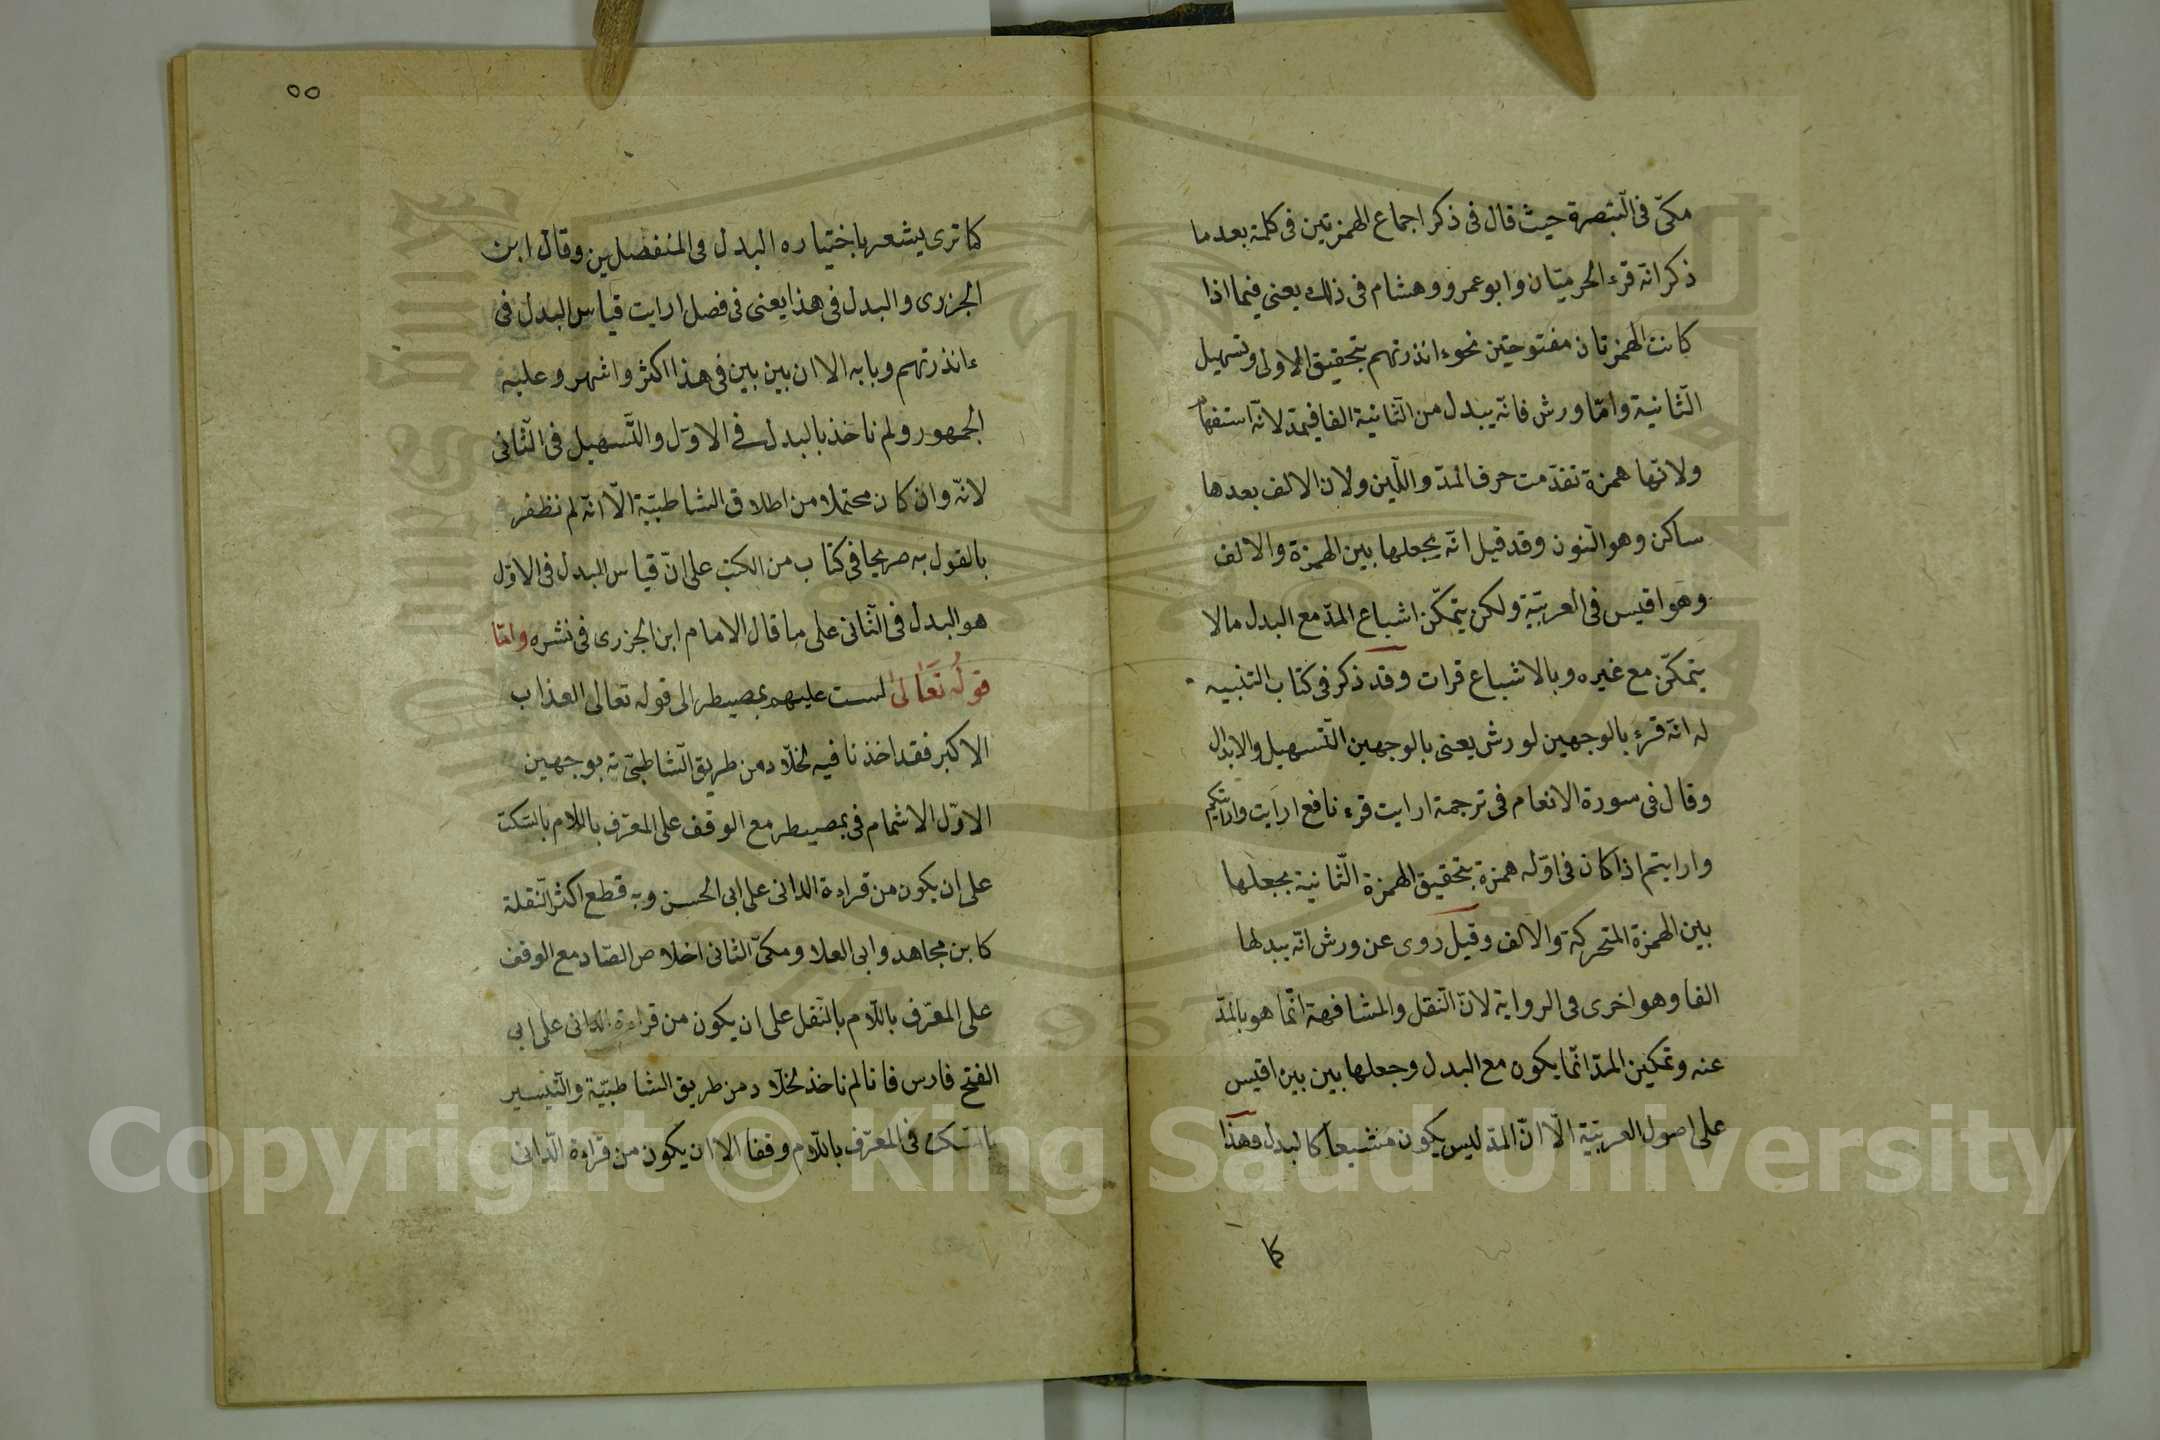 مكىّ فى التبصرة حيث قال فى ذكر اجماع الهمزتين فى كلمة بعد ما
ذكر انه قرء الحرميّان وابو عمرو وهشام فى ذلك يعنى فيما اذا
كانت الهمزتان مفتوحتين نحو ءانذرتهم بتحقيق الاولى وتسهيل
الثّانية وامّا ورش فانّه يبدل من الثّانية الفا فيمدّ لانّه استفهام
ولانّها همزة تقدّمت حرف المدّ واللّين ولان الالف بعدها
ساكن وهو النّون وقد قيل انّه يجعلها بين الهمزة والالف
وهو اقيس فى العربيّة ولكن يتمكّن اشباع المدّ مع البدل مالا
يتمكّن مع غيره وبالاشباع قرات وقد ذكر فى كتاب التنبيه
له انّه قرء بالوجهين لورش يعنى بالوجهين التّسهيل والابدال
وقال فى سورة الانعام فى ترجمة ارايت قرء نافع ارايت وارايتكم
وارايتم اذا كان فى اوّله همزة بتحقيق الهمزة الثّانية بجعلها
بين الهمزة المتحركة والالف وقيل روى عن ورش انّه يبدلها
الفا وهو اخرى فى الرواية لانّ النّقل والمشافهة انّما هو بالمدّ
عنه وتمكين المدّ انّما يكون مع البدل وجعلها بين بين اقيس
على اصول العربيّة الّا انّ المدّ ليس يكون مشبعا كالبدل وهذا
كا
٥٥
كما ترى يشعر باختياره البدل فى المنفصلين وقال ابن
الجزرى والبدل فى هذا يعنى فى فصل ارايت قياس البدل فى
ءانذرتهم وبابه الا ان بين بين فى هذا اكثر واشهر وعليه
الجمهور ولم ناخذ بالبدل فى الاوّل والتّسهيل فى الثّانى
لانّه وان كان محتملا من اطلاق الشاطبيّة الّا انّه لم نظفر
بالقول به صريحا فى كتاب من الكتب على انّ قياس البدل فى الاوّل
هو البدل فى الثّانى على ما قال الامام ابن الجزرى فى نشره وامّا
قولُه تَعَالىٰ لست عليهم بمصيطر الى قوله تعالى العذاب
الاكبر فقد اخذنا فيه لخلّاد من طريق الشاطبيّة بوجهين
الاوّل الاشمام فى بمصيطر مع الوقف على المعرّف باللّام بالسّكت
على ان يكون من قراءة الدانى على ابى الحسن وبه قطع اكثر النّقلة
كابن مجاهد وابى العلا ومكىّ الثانى اخلاص الصّاد مع الوقف
على المعرّف باللّام بالنّقل على ان يكون من قراءة الدانى على ابى
الفتح فارس فانا لم ناخذ لخلّاد من طريق الشاطبيّة والتّيسير
بالسّكت فى المعرّف باللّام وقفا الا ان يكون من قراءة الدّانى
Copyright © King Saud University
1957